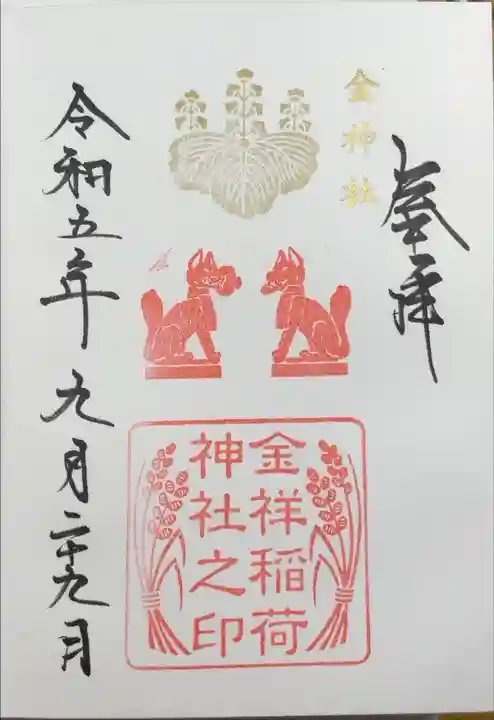 奉拝
金神社
金祥稲荷
神社之印
令和五年九月二十九月